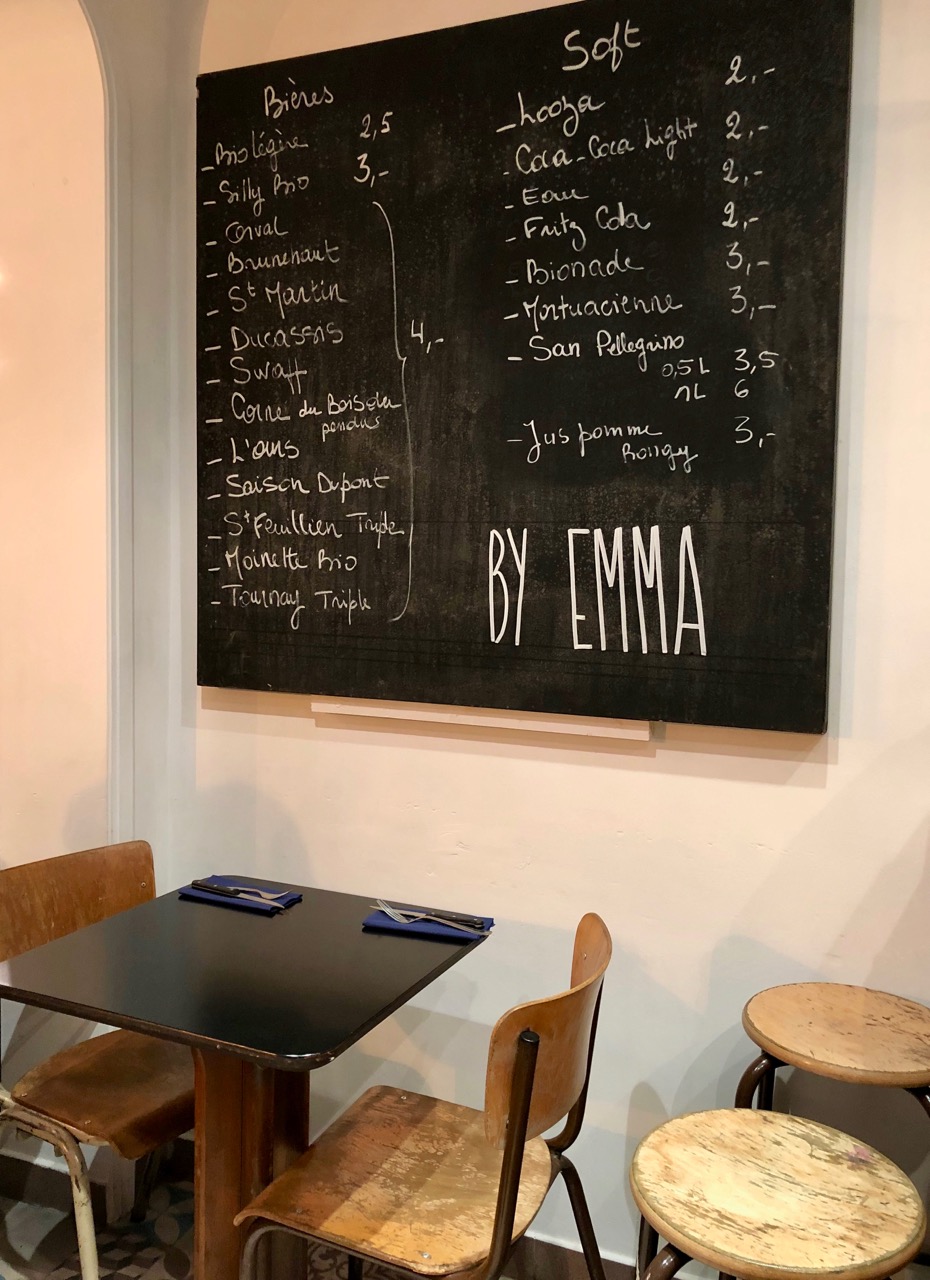 Bières
- Biolégère 2,5
- Silly Bio 3,-
- Orval
- Brunehaut
- St Martin
- Ducassis
- Swaff
- Corne du Bois des
pendus
- L'ours
- Saison Dupont
- St Feuillien Triple
- Moinette Bio
- Tournay Triple
4,-
Soft
- Looza 2,-
- Coca - Coca Light 2,-
- Eau 2,-
- Fritz Cola 2,-
- Bionade 3,-
- Mortuacienne 3,-
- San Pellegrino
0,5L 3,5
1L 6
- Jus pomme 3,-
Rongy
BY EMMA